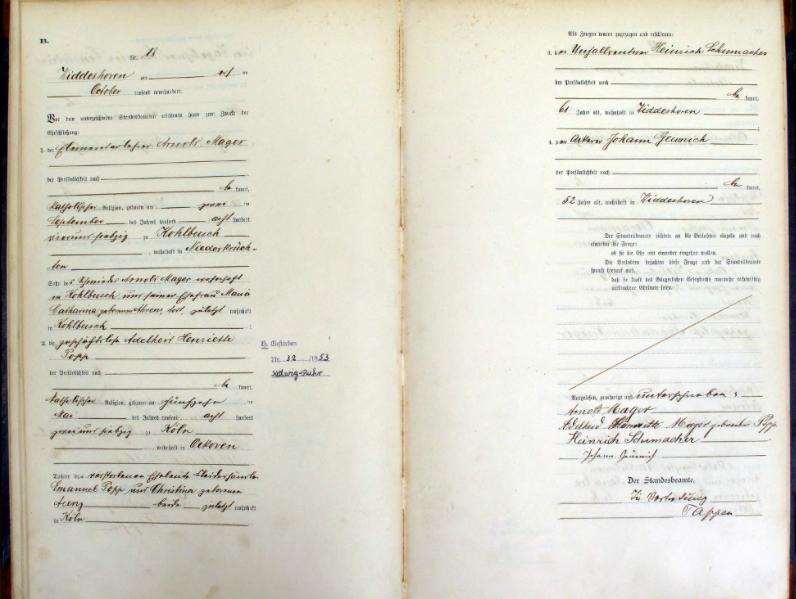 B.
Nr. 18
Widdeshoven am
October tausend neunhundert.
Vor dem unterzeichneten Standesbeamten erschienen heute zum Zweck der
Eheschließung:
1. der Elementarlehrer Arnold Mager
der Persönlichkeit nach
be kannt,
katholischer Religion, geboren am zwei
September des Jahres tausend acht hundert
vierundsiebzig zu Kohlbusch
, wohnhaft in Niederkrüch-
ten
Sohn des Arnold Mager wohnhaft
in Kohlbusch und seiner Ehefrau Maria
Catharina geborenen Ahrens, dort zuletzt wohnhaft
in Kohlbusch
2. die geschäftslose Adelheid Henriette
Popp
der Persönlichkeit nach
be kannt,
katholischer Religion, geboren am fünfzehn
Mai des Jahres tausend acht hundert
zweiundsiebzig zu Köln
, wohnhaft in Oekoven
Tochter der verstorbenen Eheleute Kleiderhändler
Emanuel Popp und Christina geborenen
beide zuletzt wohnhaft
in Köln
Gestorben
Nr. 32 1953
Als Zeugen waren zugezogen und erschienen:
3. der Heinrich Schumacher
der Persönlichkeit nach
be kannt,
61 Jahre alt, wohnhaft in Widdeshoven
4. der Ackerer Johann
der Persönlichkeit nach
be kannt,
52 Jahre alt, wohnhaft in Widdeshoven
Der Standesbeamte richtete an die Verlobten einzeln und nach
einander die Frage:
ob sie die Ehe mit einander eingehen wollen.
Die Verlobten bejahten diese Frage und der Standesbeamte
sprach hierauf aus,
daß sie kraft des Bürgerlichen Gesetzbuchs nunmehr rechtmäßig
verbundene Eheleute seien.
Vorgelesen, genehmigt und unterschrieben:
Arnold Mager
Adelheid Henriette Mager geborene Popp
Heinrich Schumacher
Johann
Der Standesbeamte.
In Vertretung
Tappen